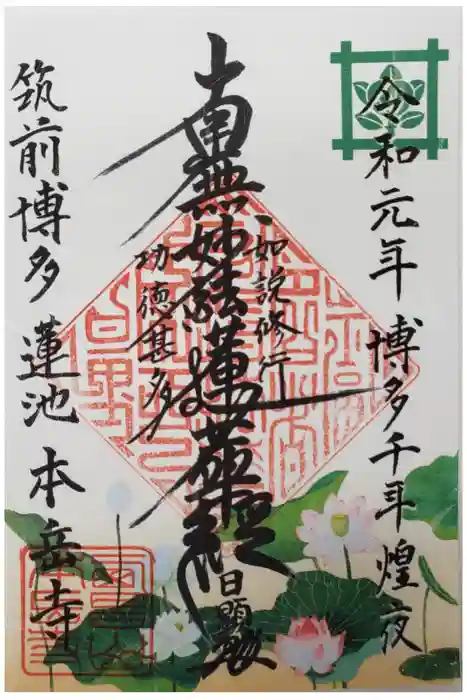 令和元年 博多千年煌夜
如説修行
南無妙法蓮華経
日顕
功徳甚多
筑前博多 蓮池 本岳寺